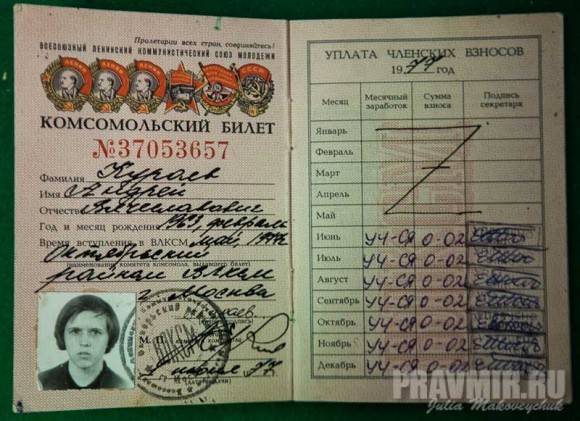 Пролетарии всех стран, соединяйтесь!
ВСЕСОЮЗНЫЙ ЛЕНИНСКИЙ КОММУНИСТИЧЕСКИЙ СОЮЗ МОЛОДЕЖИ
ЛЕНИН ЛЕНИН ЛЕНИН СССР
КОМСОМОЛЬСКИЙ БИЛЕТ
№37053657
Фамилия Кураев
Имя Андрей
Отчество Вячеславович
Год и месяц рождения 1963, февраль
Время вступления в ВЛКСМ май, 1977г
Октябрьский
(наименование комитета комсомола, выдавшего билет)
райком ВЛКСМ
г. Москва
М. П.
(дата выдачи)
УПЛАТА ЧЛЕНСКИХ ВЗНОСОВ
1977 год
Месяц Месячный заработок Сумма взноса Подпись секретаря
Январь
Февраль
Март
Апрель
Май
Июнь УЧ-СЯ 0-02
Июль УЧ-СЯ 0-02
Август УЧ-СЯ 0-02
Сентябрь УЧ-СЯ 0-02
Октябрь УЧ-СЯ 0-02
Ноябрь УЧ-СЯ 0-02
Декабрь УЧ-СЯ 0-02
PRAVMIR.RU
Julia Makoveychuk